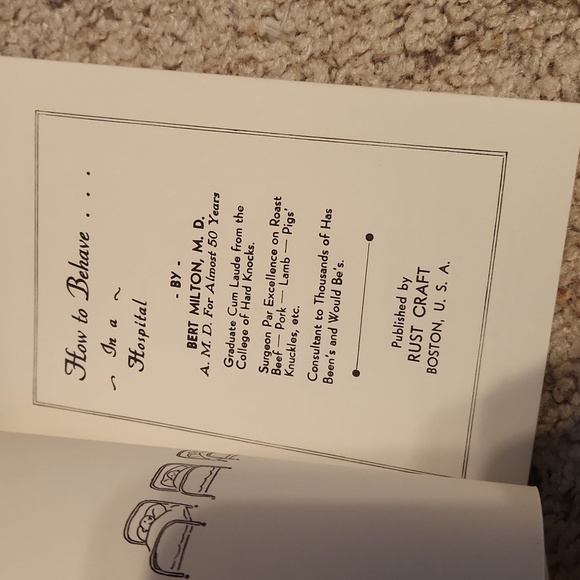 How to Behave . . .
In a
Hospital
- BY -
BERT MILTON, M. D.
A. M. D. For Almost 50 Years
Graduate Cum Laude from the
College of Hard Knocks.
Surgeon Par Excellence on Roast
Beef — Pork — Lamb — Pigs'
Knuckles, etc.
Consultant to Thousands of Has
Been's and Would Be's.
Published by
RUST CRAFT
BOSTON, U. S. A.